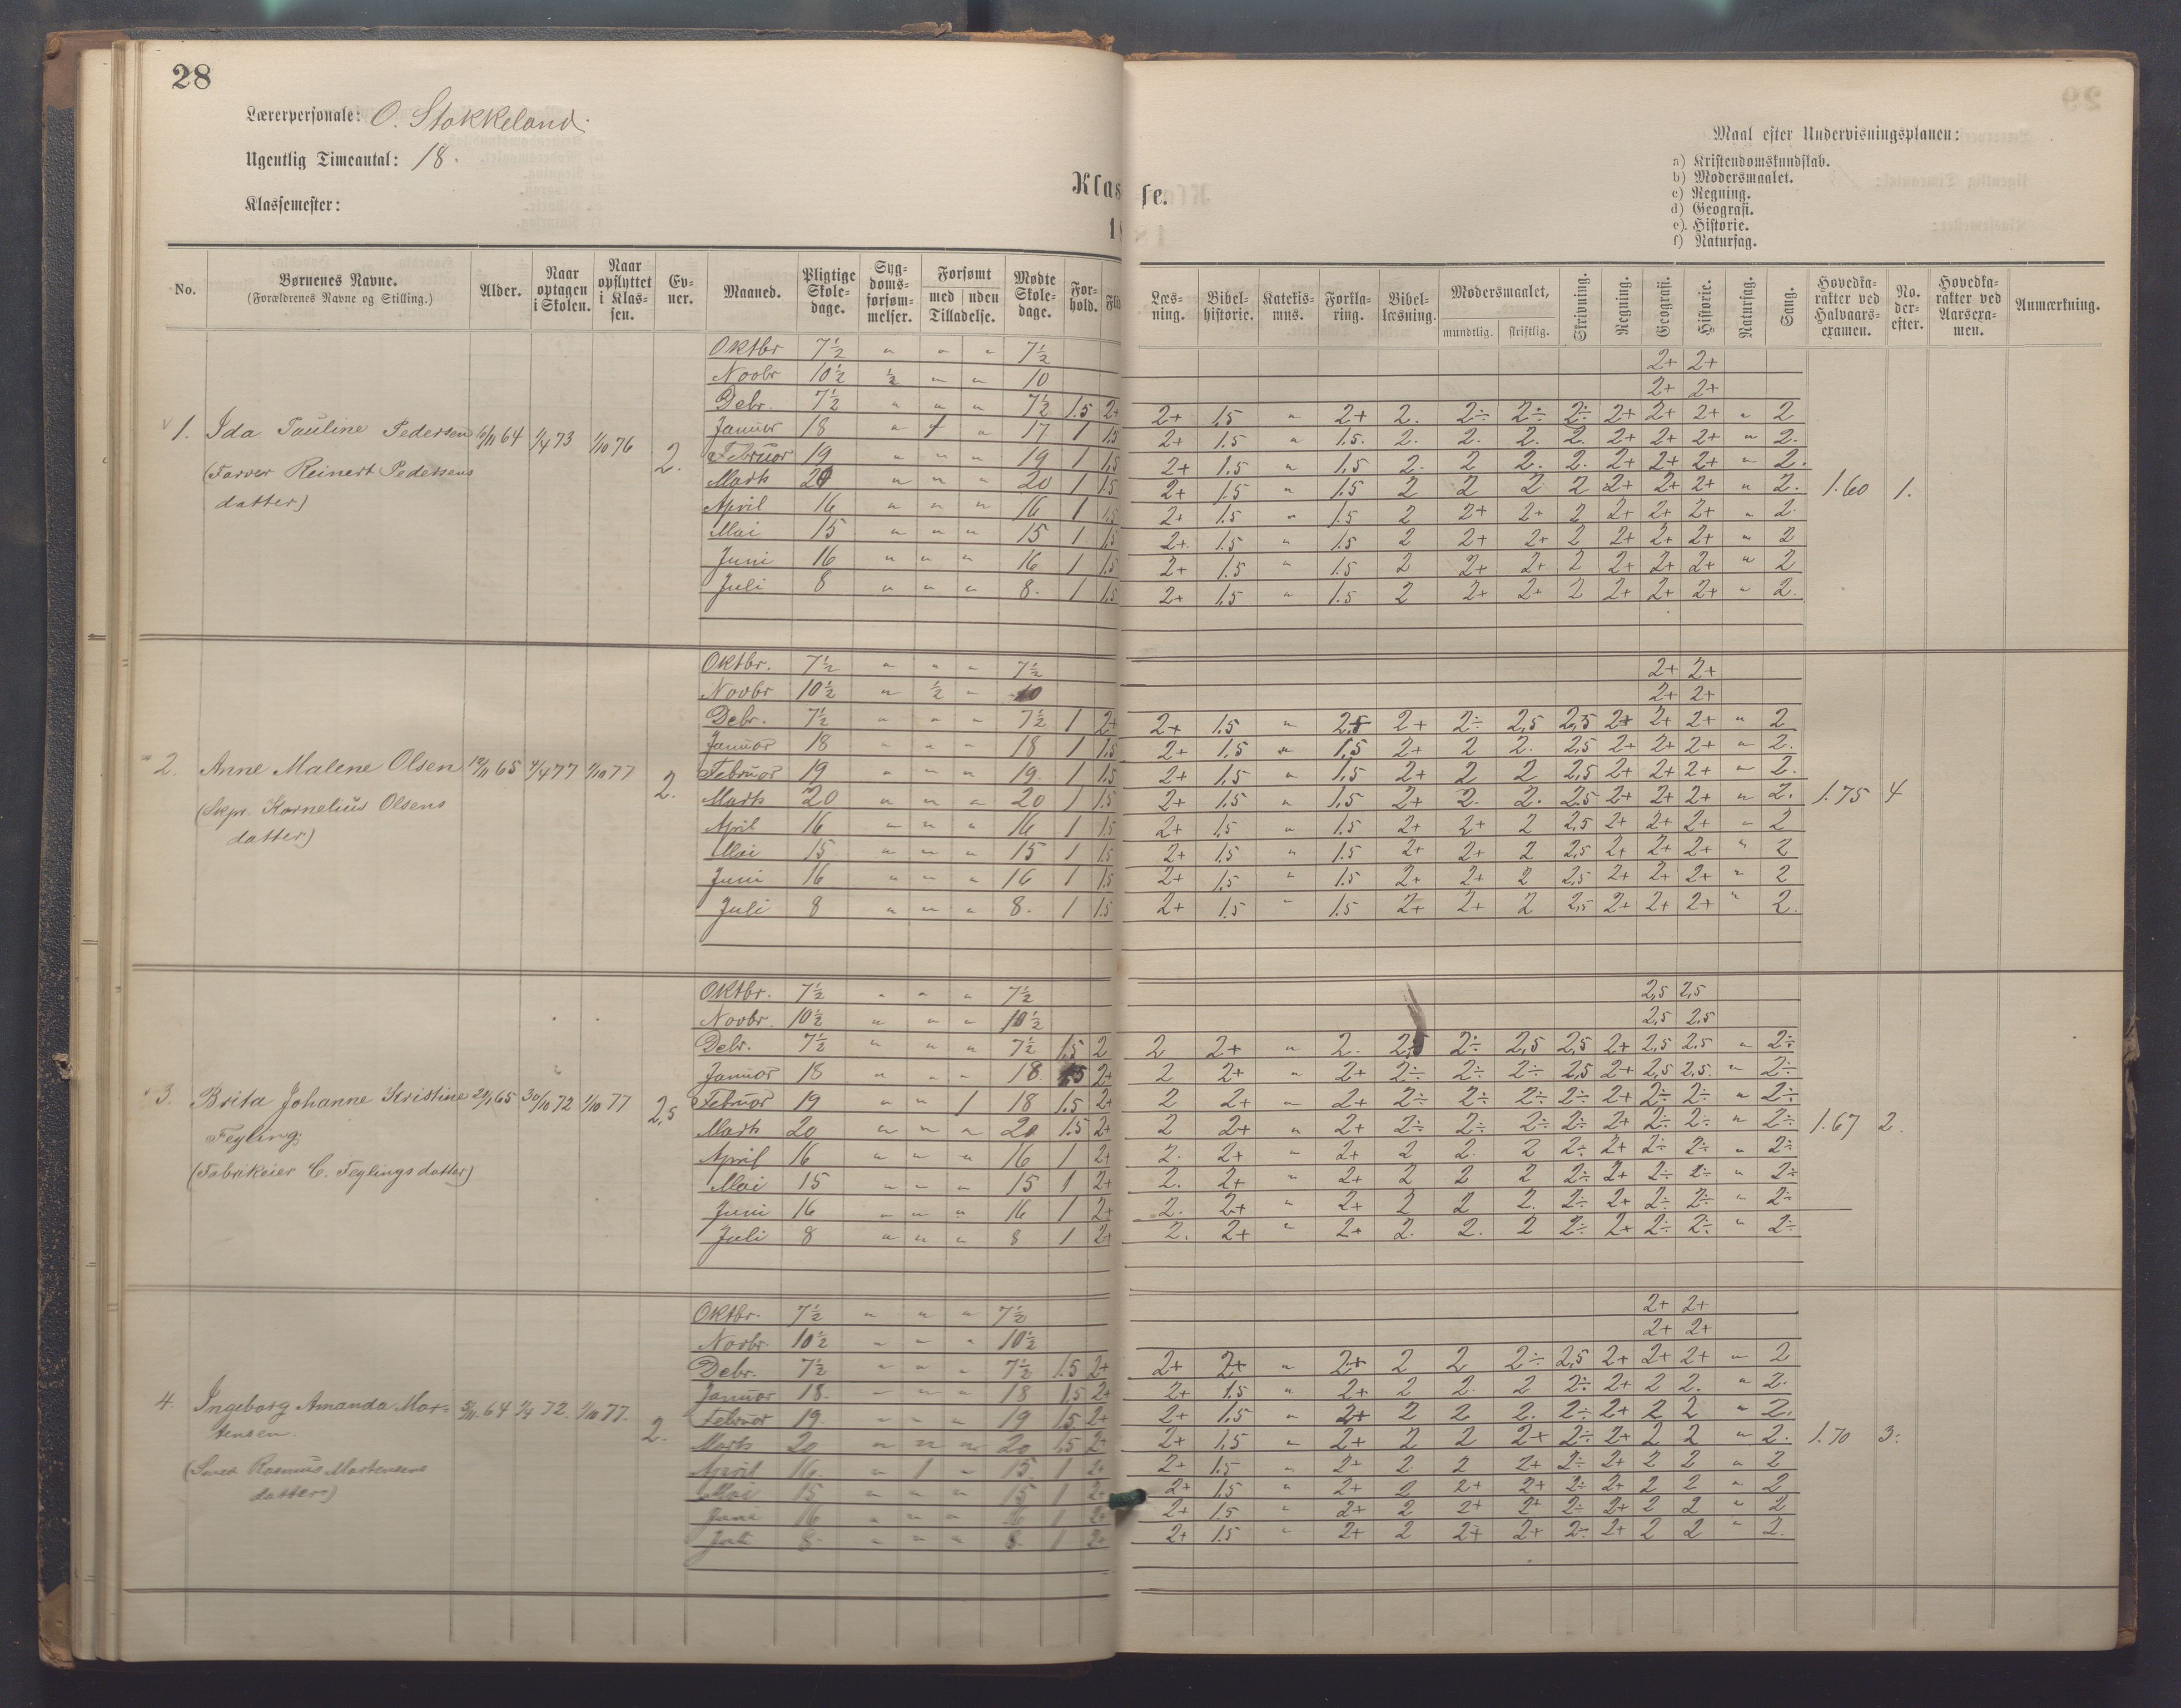 28
Lærerpersonale: O. Stokkeland.
Ugentlig Timeantal: 18.
Klassemester:
Klasse.
18
Maal efter Undervisningsplanen:
a) Kristendomskundskab.
b) Modersmaalet.
c) Regning.
d) Geografi.
e) Historie.
f) Naturfag.
No. | Børnenes Navne. (Forældrenes Navne og Stilling.) | Alder. | Naar optagen i Skolen. | Naar opflyttet i Klassen. | Evner. | Maaned. | Pligtige Skoledage. | Sygdomsforsømmelser. | Forsømt med uden Tilladelse. | Mødte Skoledage. | Forhold. | Læsning. | Bibelhistorie. | Katekismus. | Forklaring. | Bibellæsning. | Modersmaalet, mundtlig. skriftlig. | Skrivning. | Regning. | Geografi. | Historie. | Naturfag. | Sang. | Hovedkarakter ved Halvaarsexamen. | No. derefter. | Hovedkarakter ved Aarsexamen. | Anmærkning.
1. Ida Pauline Pedersen 1/4 73 1/10 76 2.
(Farver Reinert Pedersens
datter)
Oktbr 7½ " " " 7½ 2+ 2+
Novbr 10½ ½ " " 10 2+ 2+
Debr. 7½ " " " 7½ 1.5 2+ 2+ 1.5 " 2+ 2. 2÷ 2÷ 2÷ 2+ 2+ 2+ " 2
Januar 18 " 1 " 17 1 1.5 2+ 1.5 " 1.5. 2. 2. 2. 2. 2+ 2+ 2+ " 2.
Februar 19 " " " 19 1 1.5 2+ 1.5 " 1.5 2. 2 2. 2. 2+ 2+ 2+ " 2.
Marts 20 " " " 20 1 1.5 2+ 1.5 " 1.5 2 2 2 2 2+ 2+ 2+ " 2. 1.60 1.
April 16 " " " 16 1 1.5 2+ 1.5 " 1.5 2 2+ 2+ 2 2+ 2+ 2+ " 2.
Mai 15 " " " 15 1 1.5 2+ 1.5 " 1.5 2 2+ 2+ 2 2+ 2+ 2+ " 2
Juni 16 " " " 16 1 1.5 2+ 1.5 " 1.5 2 2+ 2+ 2 2+ 2+ 2+ " 2
Juli 8 " " " 8. 1 1.5 2+ 1.5 " 1.5 2 2+ 2+ 2 2+ 2+ 2+ " 2.
2. Anne Malene Olsen 12/11 65 4/4 77 1/10 77 2.
(Skpr. Kornelius Olsens
datter)
Oktbr. 7½ " " " 7½ 2+ 2+
Novbr 10½ " ½ " 10 2+ 2+
Debr. 7½ " " " 7½ 1 2+ 2+ 1.5 " 2+ 2÷ 2,5 2,5 2+ 2+ 2+ " 2
Januar 18 " " " 18 1 1.5 2+ 1.5 " 1.5 2+ 2 2. 2,5 2+ 2+ 2+ " 2.
Februar 19 " " " 19. 1 1.5 2+ 1.5 " 1.5 2+ 2 2 2,5 2+ 2+ 2+ " 2.
Marts 20 " " " 20 1 1.5 2+ 1.5 " 1.5 2+ 2. 2. 2.5 2+ 2+ 2+ " 2. 1.75 4
April 16 " " " 16 1 1.5 2+ 1.5 " 1.5 2+ 2+ 2 2,5 2+ 2+ 2+ " 2
Mai 15 " " " 15 1 1.5 2+ 1.5 " 1.5 2+ 2+ 2 2,5 2+ 2+ 2+ " 2
Juni 16 " " " 16 1 1.5 2+ 1.5 " 1.5 2+ 2+ 2 2,5 2+ 2+ 2+ " 2
Juli 8 " " " 8. 1 1.5 2+ 1.5 " 1.5 2+ 2+ 2 2,5 2+ 2+ 2+ " 2.
3. Brita Johanne Kristine 65 30/10 72 1/10 77 2,5
Feyling
(Fabrikeier C. Feylings datter)
Oktbr. 7½ " " " 7½ 2,5 2,5
Novbr. 10½ " " " 10½ 2,5 2.5
Debr. 7½ " " " 7½ 1.5 2 2 2+ " 2. 2,5 2÷ 2,5 2,5 2+ 2,5 2,5 " 2÷
Januar 18 " " " 18. 1.5 2+ 2 2+ " 2+ 2÷ 2÷ 2÷ 2,5 2+ 2,5 2,5. " 2÷
Februar 19 " " 1 18 1.5 2+ 2 2+ " 2+ 2÷ 2÷ 2÷ 2÷ 2+ 2÷ 2÷ " 2÷
Marts 20 " " " 20 1.5 2+ 2 2+ " 2+ 2÷ 2÷ 2÷ 2÷ 2+ 2÷ 2÷ " 2÷ 1.67 2.
April 16 " " " 16 1 2+ 2. 2+ " 2+ 2 2. 2 2÷ 2+ 2÷ 2÷ " 2÷
Mai 15 " " " 15 1 2+ 2. 2+ " 2+ 2 2 2 2÷ 2+ 2÷ 2÷ " 2÷
Juni 16 " " " 16 1 2+ 2. 2+ " 2+ 2 2 2. 2÷ 2+ 2÷ 2÷ " 2÷
Juli 8 " " " 8 1 2+ 2. 2+ " 2+ 2. 2. 2 2÷ 2+ 2÷ 2÷ " 2÷
4. Ingeborg Amanda Mor= 64 72. 1/10 77. 2.
tensen.
(Smed Rasmus Mortensens
datter)
Oktbr. 7½ " " " 7½ 2+ 2+
Novbr. 10½ " " " 10½ 2+ 2+
Debr. 7½ " " " 7½ 1.5 2+ 2+ 2+ " 2+ 2 2 2÷ 2,5 2+ 2+ 2+ " 2
Januar 18. " " " 18 1,5 2+ 2+ 1.5 " 2+ 2 2. 2 2÷ 2+ 2 2. " 2.
Februar 19. " " " 19 1.5 2+ 2+ 1.5 " 2+ 2 2 2. 2÷ 2+ 2 2 " 2.
Marts 20 " " " 20 1.5 2+ 2+ 1.5 " 2+ 2 2 2+ 2÷ 2+ 2 2 " 2. 1.70 3.
April 16. " 1 " 15. 1 2+ 2+ 1.5 " 2+ 2 2 2+ 2÷ 2+ 2 2 " 2
Mai 15 " " " 15 1 2+ 2+ 1.5 " 2+ 2 2+ 2+ 2÷ 2+ 2 2 " 2
Juni 16 " " " 16 1 2+ 2+ 1.5 " 2+ 2 2+ 2+ 2÷ 2+ 2 2 " 2
Juli 8. " " " 8. 1 2+ 2+ 1.5 " 2+ 2 2+ 2+ 2÷ 2+ 2 2 " 2.